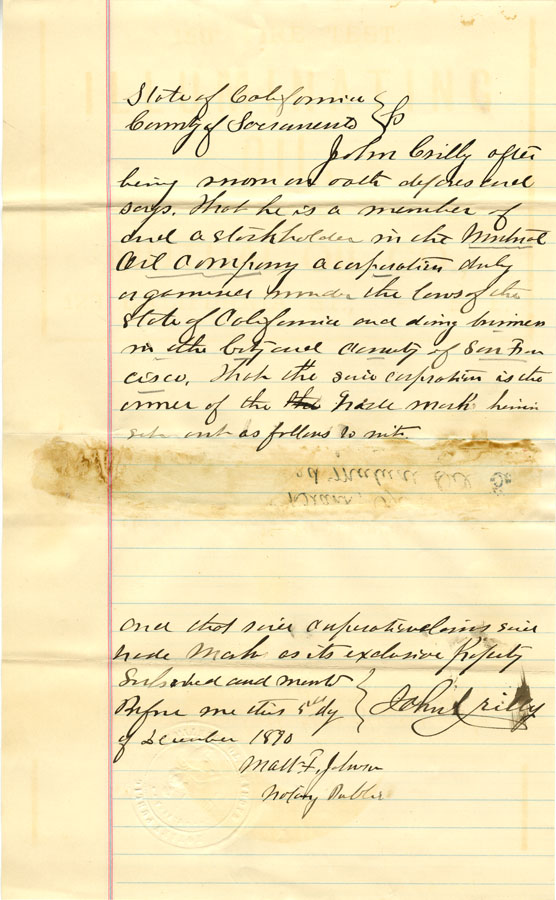 State of California
County of Sacramento } SS
John Crilly after
being sworn on oath deposes and
says. That he is a member of
and a stockholder in the Mutual
Oil Company a corporation duly
organised under the laws of the
State of California and doing business
in the City and County of San Fran
cisco. That the said corporation is the
owner of the the trade mark herein
set out as follows to wit.
and that said corporation claims said
trade Mark as its exclusive Property
Subscribed and sworn to
Before me this day } John Crilly
of December 1890
Matt. F. Johnson
Notary Public